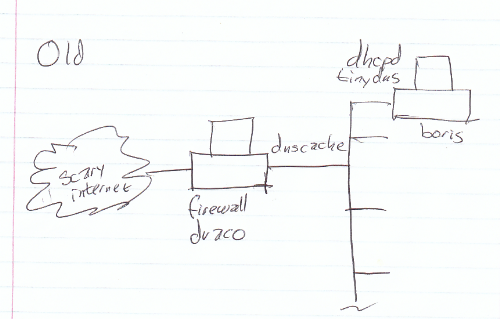 Old
dhcpd
tinydns
boris
dnscache
scary
internet
firewall
draco